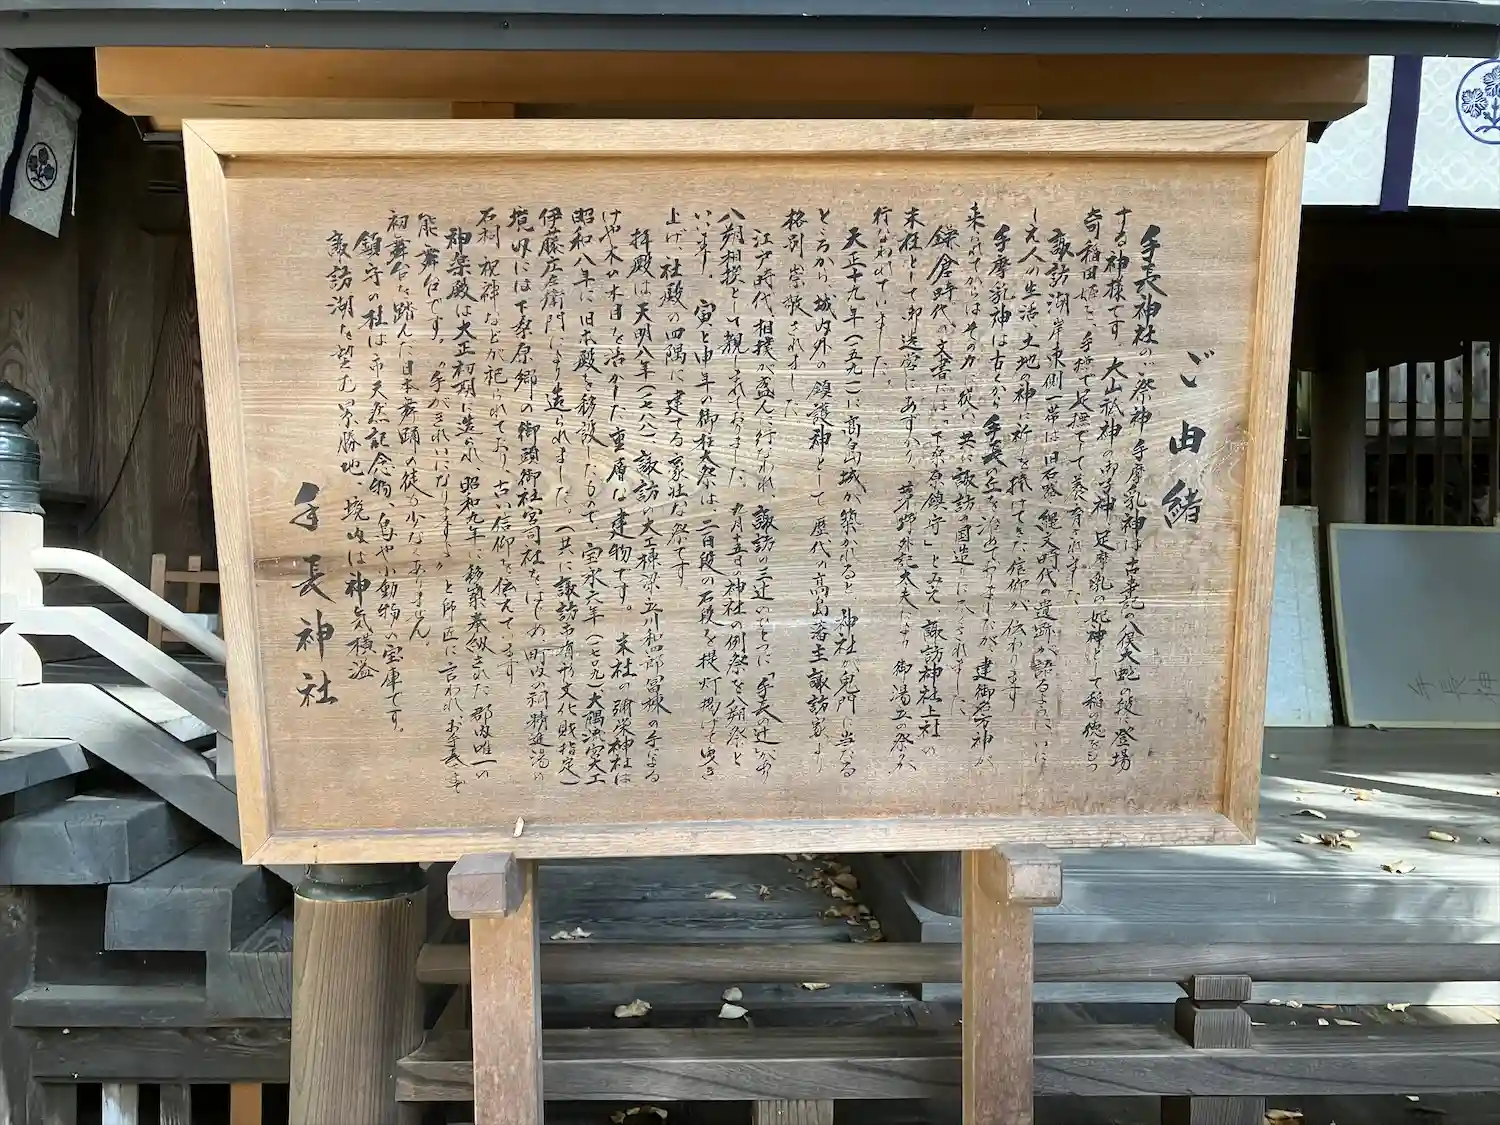 ご由緒
手長神社のご祭神 手摩乳神は古事記の八俣大蛇の段に登場
する神様です。大山祇神の御子神、足摩乳の妃神として稲の徳をもつ
奇稲田姫を、手摩で足撫でて養育されました。
諏訪湖岸東側一帯は旧石器、縄文時代の遺跡が語るように、いにし
しえ人の生活、土地の神に祈りを捧げてきた信仰が伝わります
手摩乳神は古くから手長丘を治めておりましたが、建御名方神が
来られてからはその力に従い、共に諏訪の国造りに尽くされました、
鎌倉時代の文書には「下桑原鎮守」とみえ、諏訪神社上社の
末社として御造営にあずかり、茅野外記太夫により御湯立の祭が
行なわれていました。
天正十九年（一五九一）に高島城が築かれると、神社が鬼門に当たる
ところから、城内外の鎮護神として歴代の高島藩主諏訪家より
格別崇敬されました
江戸時代、相撲が盛んに行なわれ、諏訪の三辻のひとつに「手長の辻」があり
八朔相撲として親しまれておりました。九月十五日の神社の例祭を八朔祭と
いいます。寅と申年の御柱大祭は、二百段の石段を提灯掲げて曳き
上げ、社殿の四隅に建てる豪壮な祭です。
拝殿は天明八年（一七八八）諏訪の大工棟梁立川和四郎冨棟の手による
けやき木の木目を活かした重層な建物です。末社の弥栄神社は
昭和八年に旧本殿を移設したもので宝永六年（一七〇九）、大隅流宮大工
伊藤庄左衛門により造られました。（共に諏訪市有形文化財指定）
境内には下桑原郷の御頭御社宮司社をはじめ、町内の祠、精進湯の
石祠、祝神などが祀られており、古い信仰を伝えています
神楽殿は大正初期に造られ、昭和九年に移築奉納された郡内唯一の
能舞台です。“手がきれいになりますよ”と師匠に言われ、お手長さまで
初舞台を踏んだ日本舞踊の徒も少なくありません。
鎮守の杜は市天然記念物、鳥や小動物の宝庫です。
諏訪湖を望む景勝地、境内は神気横溢
手長神社
手長神